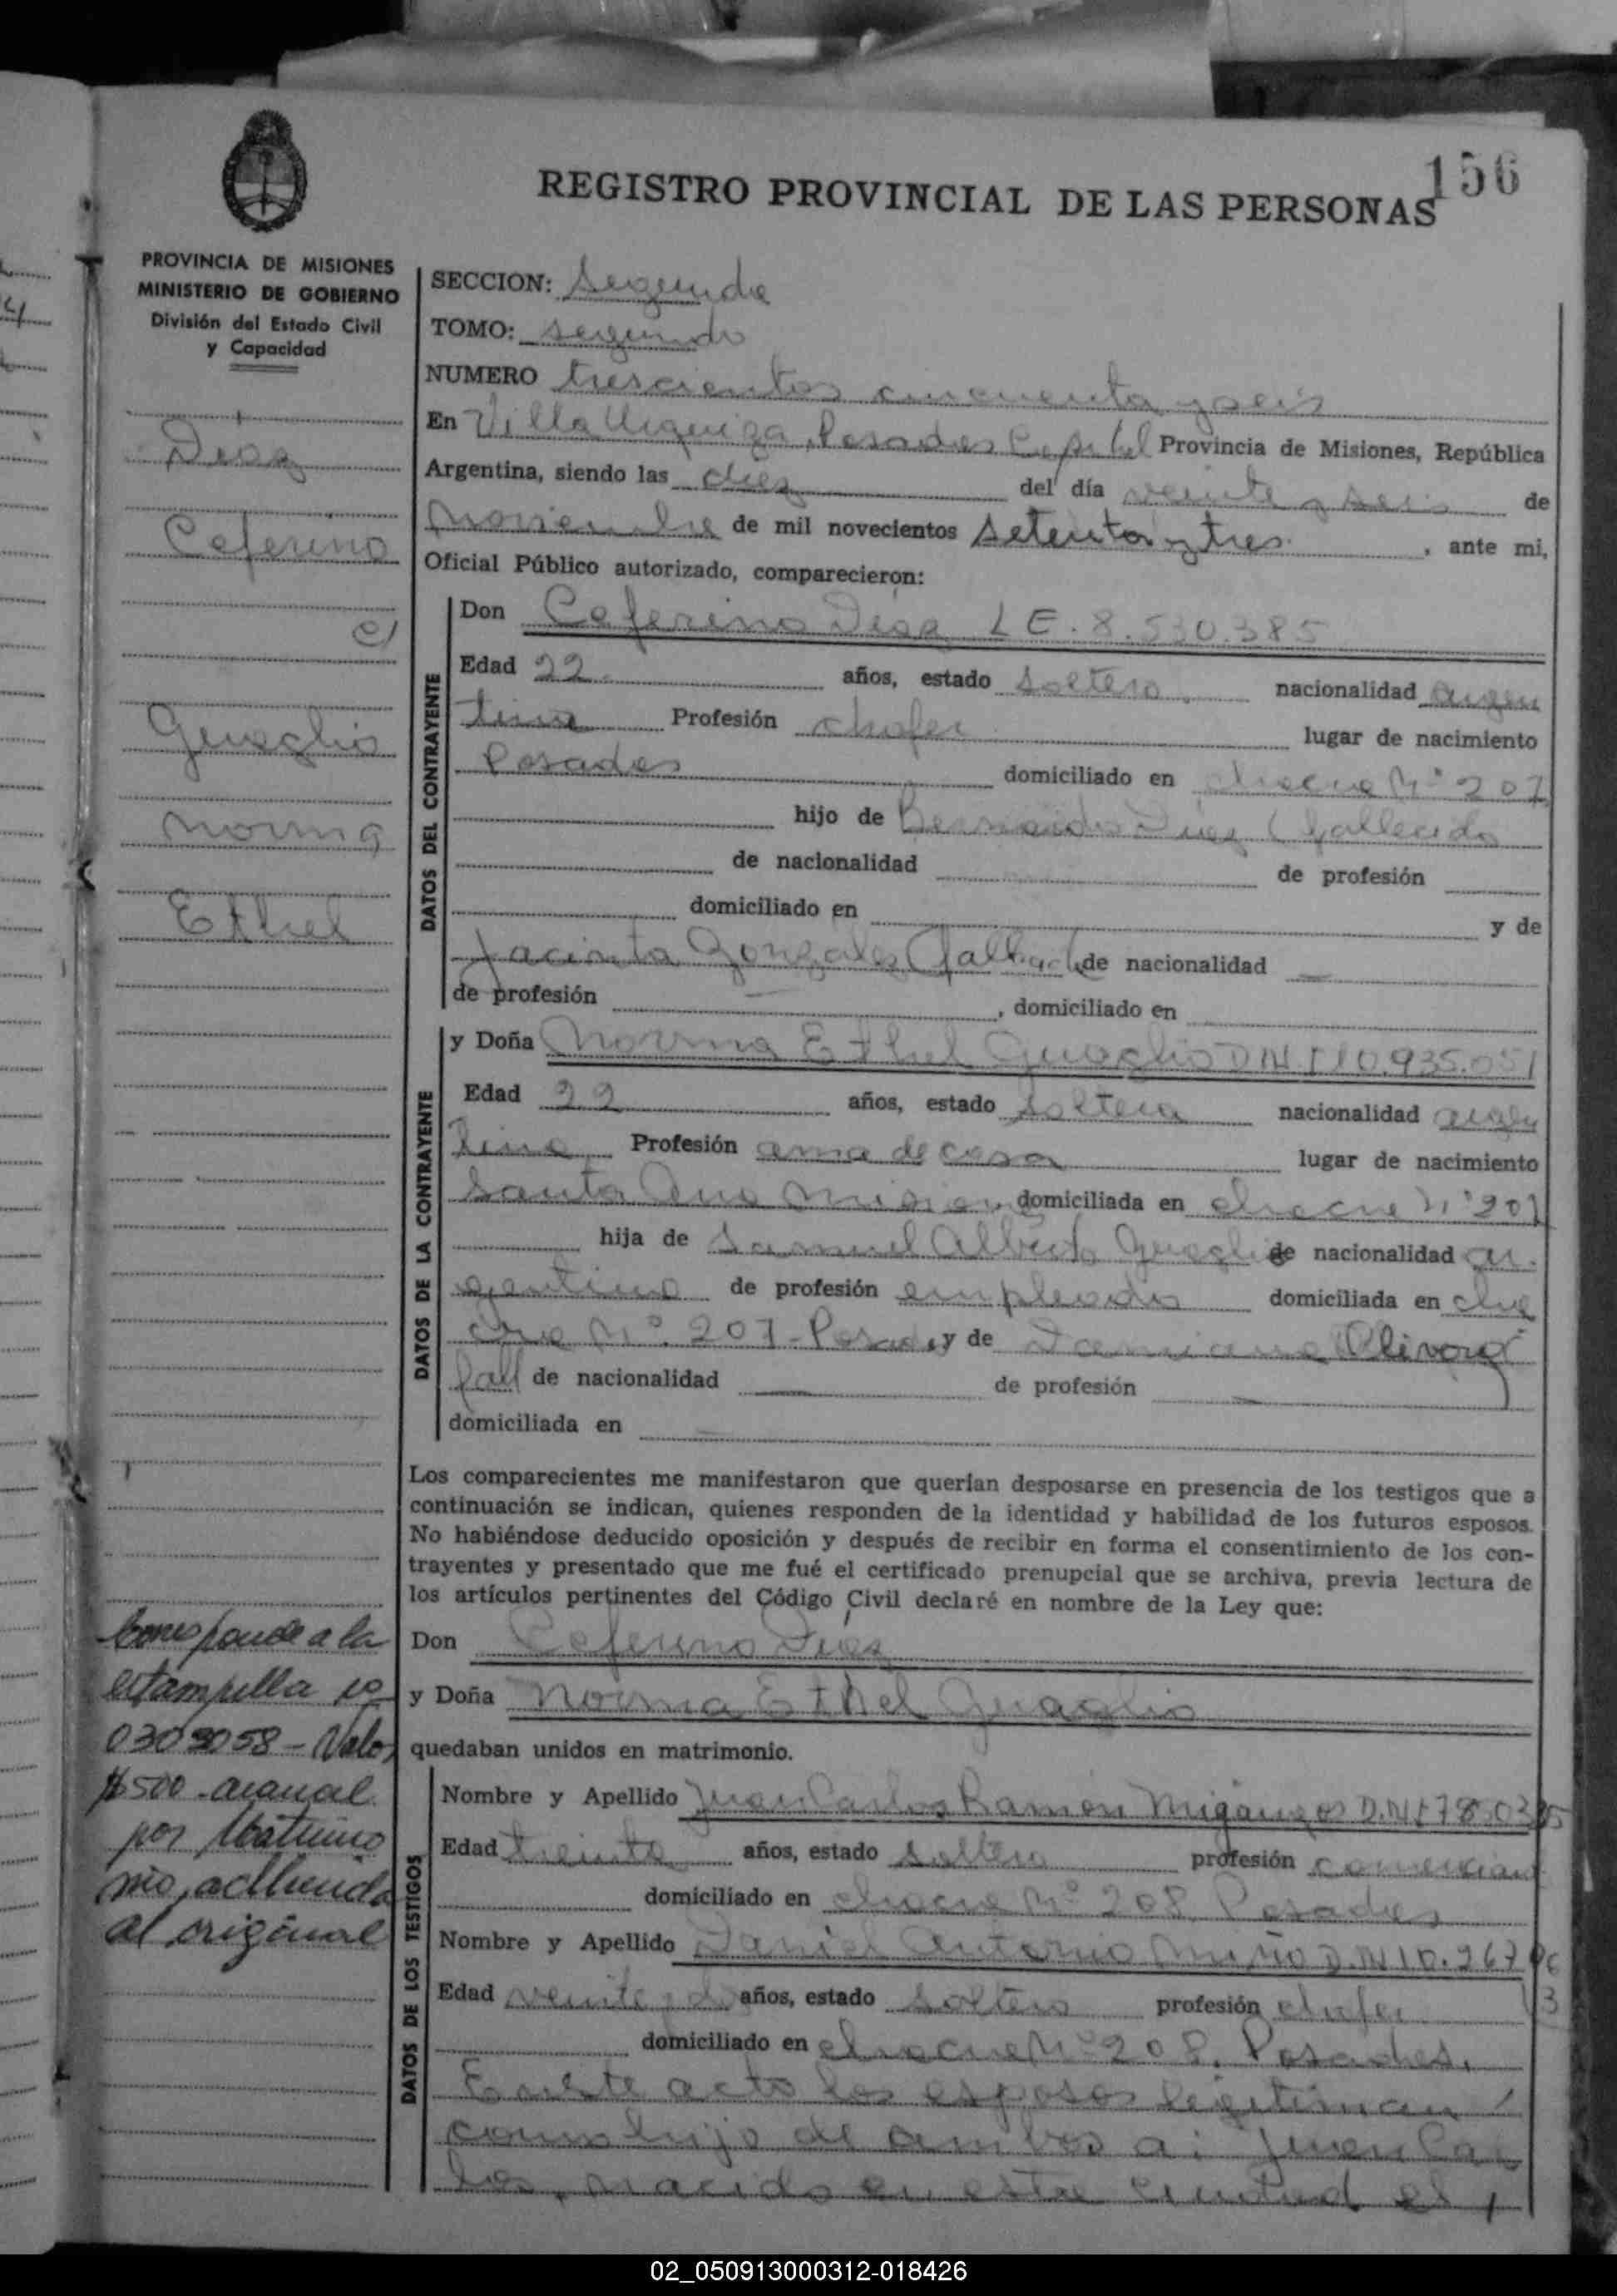 156
REGISTRO PROVINCIAL DE LAS PERSONAS
PROVINCIA DE MISIONES
MINISTERIO DE GOBIERNO
División del Estado Civil
y Capacidad
Diaz
Ceferino
c/
Guaglio
Norma
Ethel
Corresponde a la
estampilla
0309058 - Valor
$500 - arancel
por Matrimo
nio, adherida
al original
SECCION: Segunda
TOMO: segundo
NUMERO trescientos cincuenta y seis
En Villa Urquiza, Posadas Capital Provincia de Misiones, República
Argentina, siendo las diez del día veinte y seis de
Noviembre de mil novecientos setenta y tres , ante mi,
Oficial Público autorizado, comparecieron:
DATOS DEL CONTRAYENTE
Don Ceferino Diaz L E . 8.530.385
Edad 22 años, estado soltero nacionalidad argen
tina Profesión chofer lugar de nacimiento
Posadas domiciliado en chacra Nº 207
hijo de Bernardo Diaz (fallecido
de nacionalidad de profesión
domiciliado en y de
Jacinta Gonzales de nacionalidad —
de profesión — , domiciliado en
DATOS DE LA CONTRAYENTE
y Doña Norma Ethel Guaglio DNI 10.935.051
Edad 22 años, estado soltera nacionalidad argen
tina Profesión ama de casa lugar de nacimiento
Santa Ana Misiones domiciliada en chacra Nº 207
hija de Samuel Alberto Guaglio de nacionalidad ar
gentino de profesión empleado domiciliada en cha
cra Nº. 207 - Posadas y de Damiana
fall de nacionalidad — de profesión —
domiciliada en —
Los comparecientes me manifestaron que querían desposarse en presencia de los testigos que a
continuación se indican, quienes responden de la identidad y habilidad de los futuros esposos.
No habiéndose deducido oposición y después de recibir en forma el consentimiento de los con-
trayentes y presentado que me fué el certificado prenupcial que se archiva, previa lectura de
los artículos pertinentes del Código Civil declaré en nombre de la Ley que:
Don Ceferino Diaz
y Doña Norma Ethel Guaglio
quedaban unidos en matrimonio.
DATOS DE LOS TESTIGOS
Nombre y Apellido Juan Carlos Ramón D.N.I
Edad treinta años, estado soltero profesión comercian
domiciliado en chacra Nº 208 Posadas
Nombre y Apellido Daniel Antonio Miño D.N.I
Edad veinte y dos años, estado soltero profesión chofer
domiciliado en chacra Nº 208. Posadas.
En este acto los esposos legitiman
como hijo de ambos a: Juan Car
los, nacido en esta ciudad el
02_050913000312-018426